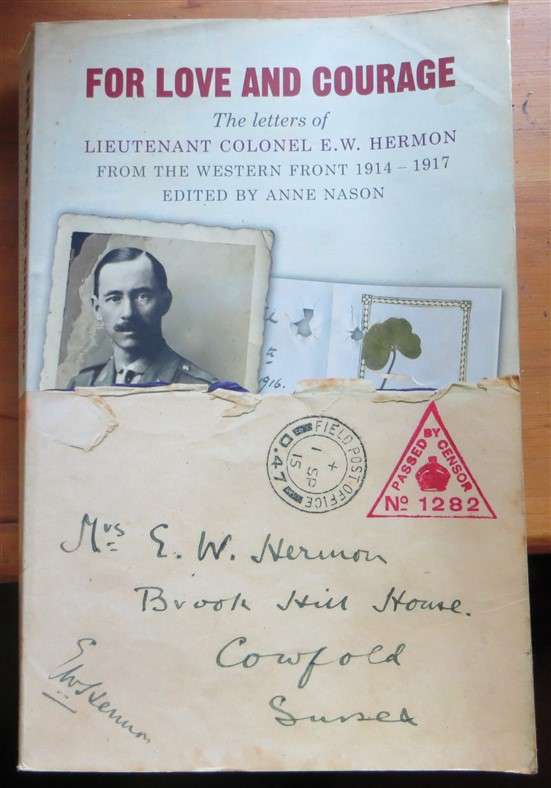 FOR LOVE AND COURAGE
The letters of
LIEUTENANT COLONEL E.W. HERMON
FROM THE WESTERN FRONT 1914 – 1917
EDITED BY ANNE NASON
1916.
FIELD POST OFFICE
+
1 SP
15
D.47
PASSED BY CENSOR
No 1282
Mrs E. W. Hermon
Brook Hill House.
Cowfold
Sussex
EWHermon